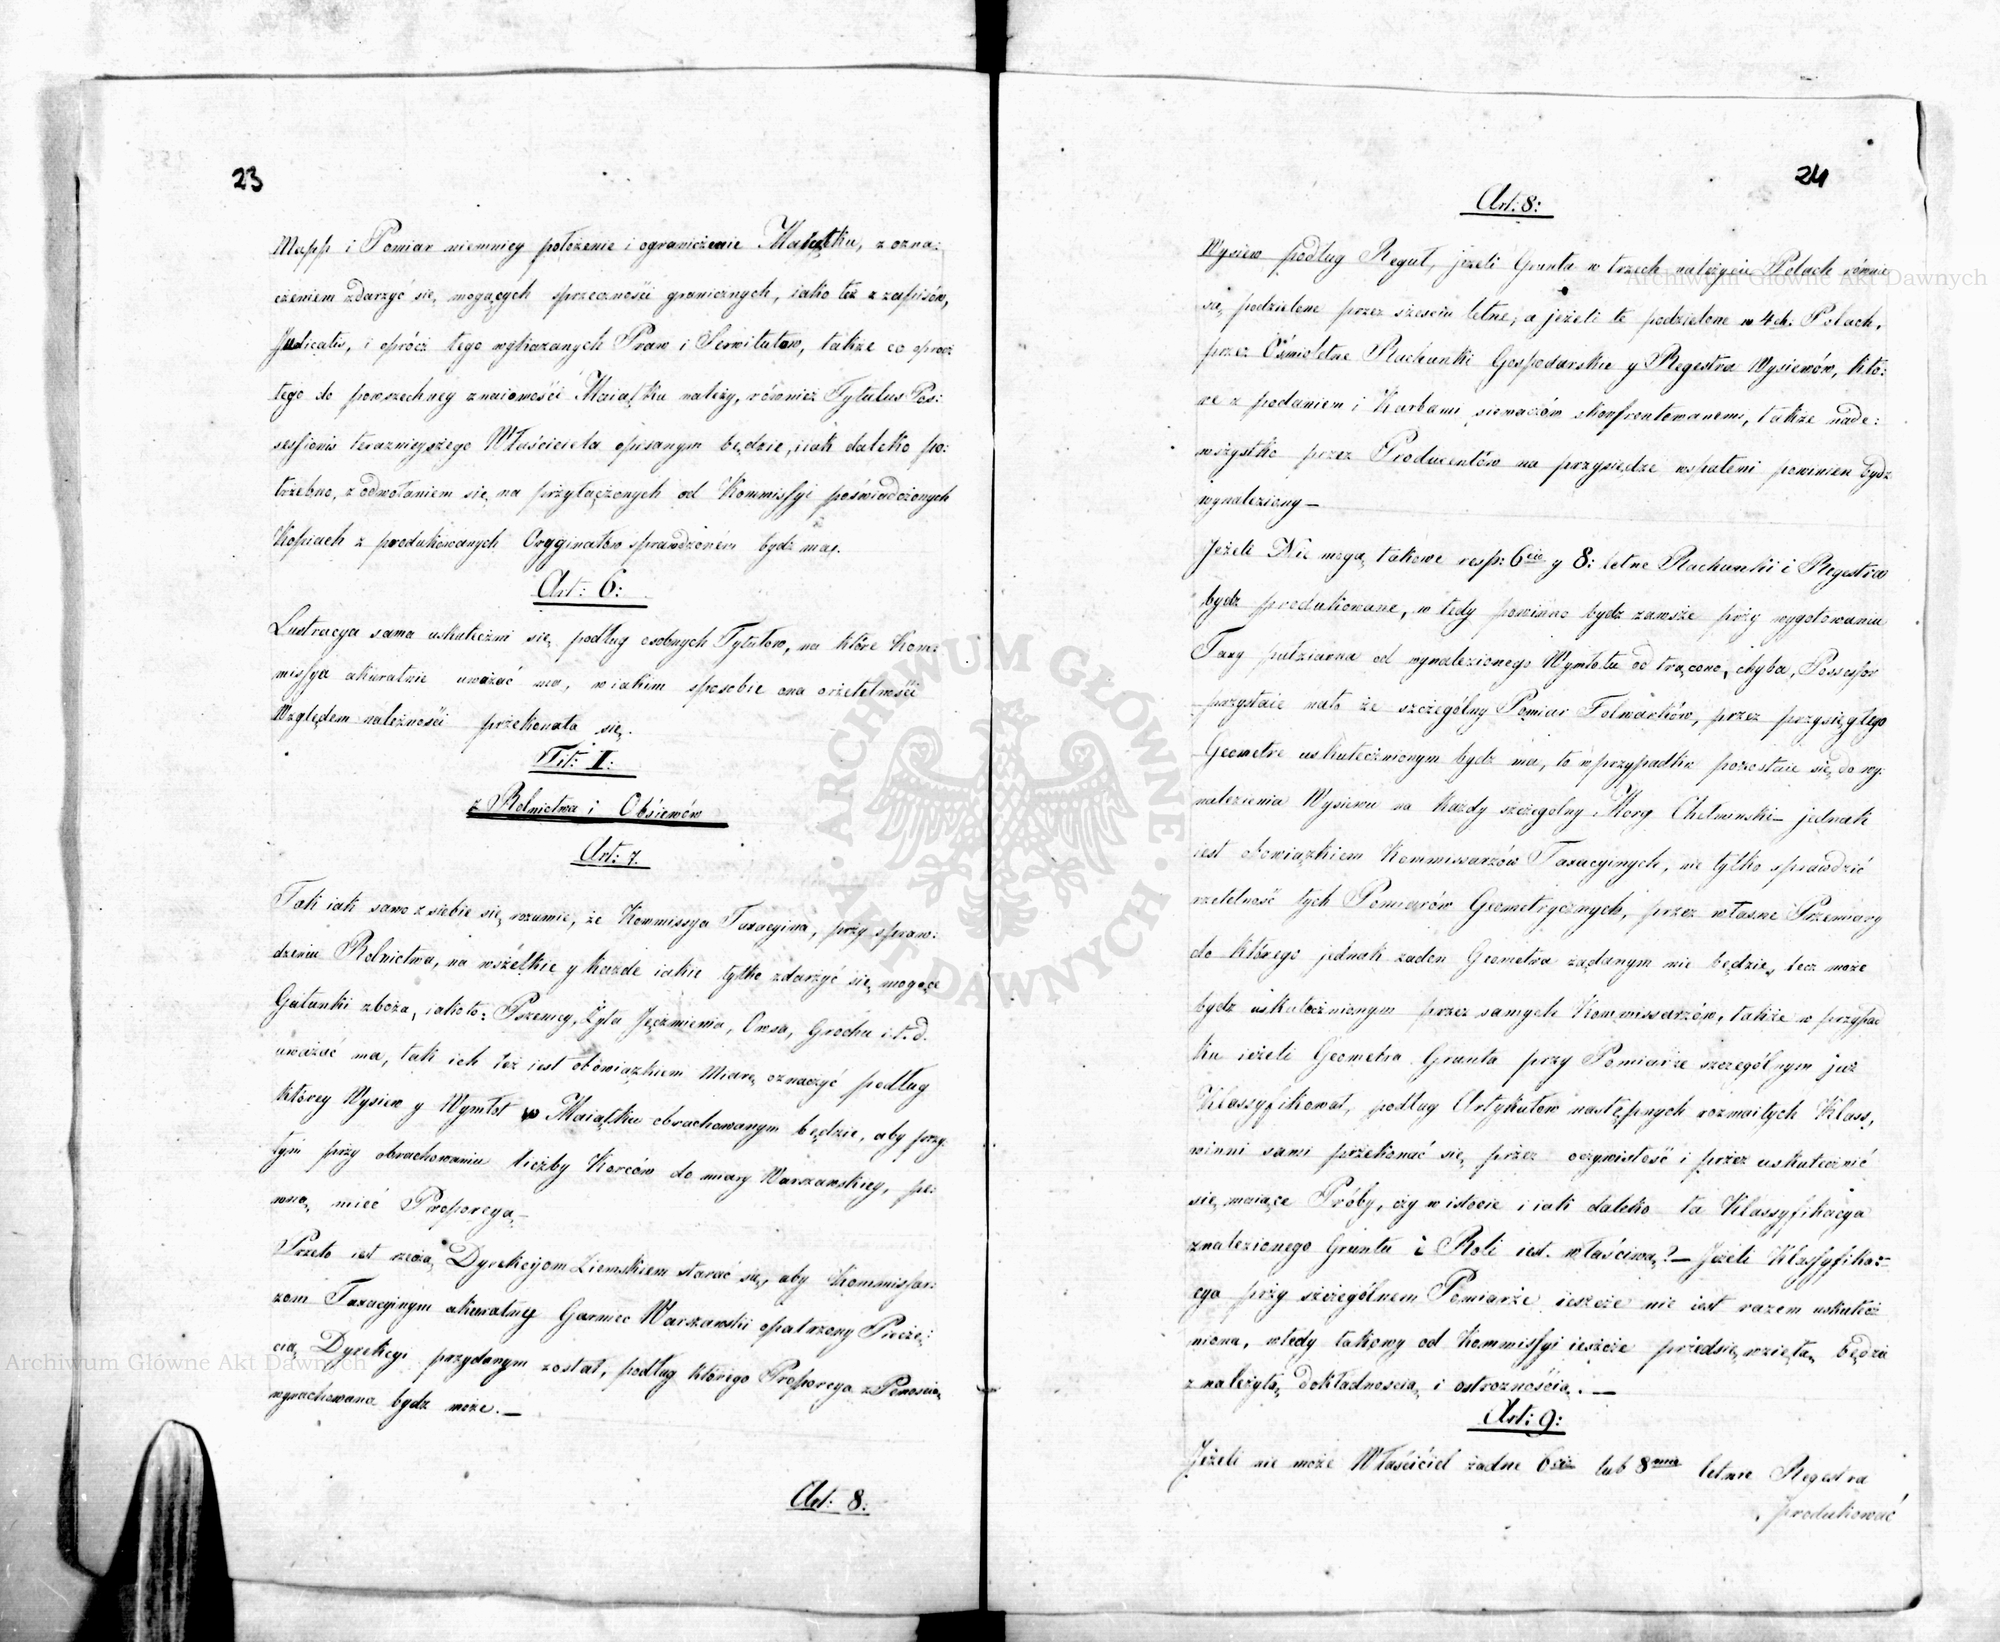 23
Mapp i Pomiar niemniey położenie i ograniczenie Maiątku, z ozna:
czeniem zdarzyć się mogących sprzecznośći granicznych, iako też z zapisów,
Judicatis, i oprócz tego wykazanych Praw i Serwitutow, także co oprocz
tego do powszechney znaiomośći Maiątku należy, również Tytulus Pos:
sessionis terazniejszego Właściciela opisanym będzie, iak daleko po:
trzebno, z odwołaniem się na przyłączonych od Kommissyi poświadczonych
Kopiach z produkowanych Oryginałow sprawdzonem bydz maią.
Art: 6:
Lustracya sama uskuteczni się podług osobnych Tytułow, na które Kom:
missya akuratnie uważać ma, w iakim sposobie ona o rzetelnośći
Względem należnośći przekonała się.
Tit: I:
z Rolnictwa i Obsiewów
Art: 7.
Tak iak samo z siebie się rozumie, że Kommissya Taxacyina, przy spraw:
dzeniu Rolnictwa, na wszelkie y każde iakie tylko zdarzyć się mogące
Gatunki zboża, iakoto: Pszenicy, Żyta Jęczmienia, Owsa, Grochu i.t.d.
uważać ma, tak ich też iest obowiązkiem Miarę oznaczyć podług
którey Wysiew y Wymłot w Maiątku obrachowanym będzie, aby przy
tym przy obrachowaniu liczby Korców do miary Warszawskiey, pe:
wną mieć Proporcyą —
Przeto iest rzeczą Dyrekcyom Ziemskiem starać się, aby Kommissar:
zom Taxacyinym akuratny Garniec Warszawski opatrzony Pieczę:
cią Dyrekcyi przydanym został, podług którego Proporcya z Pewnością
wyrachowana bydz może. —
Art: 8:
24
Art: 8:
Wysiew podług Reguł, jeżeli Grunta w trzech należycie Polach równie
są podzielone przez sześciu letne, a jeżeli te podzielone w 4ch: Polach,
przez Ośmioletne Rachunki Gospodarskie y Regestra Wysiewów, któ:
re z podaniem i Karbami siewaczów skonfrontowanemi, także nade:
wszystko przez Producentów na przysiędze wsparemi powinien bydz
wynaleziony —
Jeżeli Nie mogą takowe resp: 6cio y 8: letne Rachunki i Regestra
bydz produkowane, w tedy powinno bydz zawsze przy wygotowaniu
Taxy pułziarna od wynalezionego Wymłotu odtrącono, chyba, Possessor
przystaie nato że szczególny Pomiar Folwarków, przez przysięgłego
Geometrę uskutecznionym bydz ma, to w przypadku pozostaie się do wy:
nalezienia Wysiewu na Każdy szczególny Morg Chełminski — jednak
iest obowiązkiem Kommissarzów Taxacyinych, nie tylko sprawdzić
rzetelność tych Pomiarów Geometrycznych, przez własne Przemiary
do którego jednak żaden Geometra żądanym nie będzie, lecz może
bydz uskutecznionym przez samych Kommissarzów, także w przypad
ku ieżeli Geometra Grunta przy Pomiarze szczególnym już
Klassyfikował, podług Artykułow następnych rozmaitych Klass,
winni sami przekonać się przez oczywistość i przez uskutecznić
się maiące Próby, czy w istocie i iak daleko ta Klassyfikacya
znalezionego Gruntu i Roli iest właściwą? — Jeżeli Klassyfika:
cya przy szczególnem Pomiarze ieszcze nie iest razem uskutecz
niona, wtedy takowy od Kommissyi ieszcze przedsięwzięta będzie
z należytą dokładnoscią i ostroznością. —
Art: 9:
Jeżeli nie może Właśćićiel żadne 6cio lub 8mio letnie Regestra
produkować
ARCHIWUM GŁÓWNE AKT DAWNYCH
Archiwum Główne Akt Dawnych
Archiwum Główne Akt Dawnych